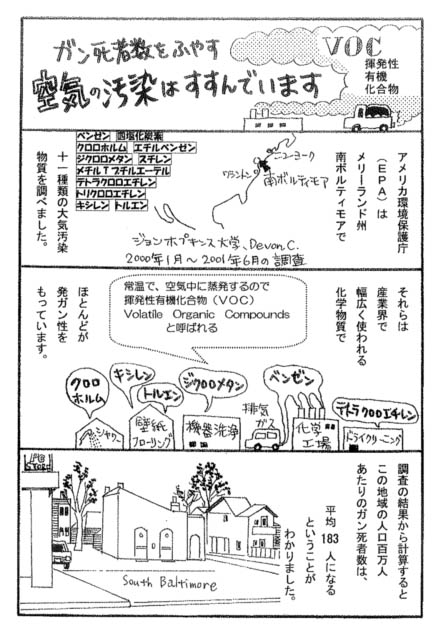 ガン死者数をふやす
空気の汚染はすすんでいます
VOC
揮発性
有機
化合物
アメリカ環境保護庁
（EPA）は
メリーランド州
南ボルティモアで
十一種類の大気汚染
物質を調べました。
ベンゼン 四塩化炭素
クロロホルム エチルベンゼン
ジクロロメタン スチレン
メチルTブチルエーテル
テトラクロロエチレン
トリクロロエチレン
キシレン トルエン
ニューヨーク
ワシントン
南ボルティモア
ジョンホプキンス大学、Devon.C.
2000年1月～2001年6月の調査
それらは
産業界で
幅広く使われる
化学物質で
常温で、空気中に蒸発するので
揮発性有機化合物（VOC）
Volatile Organic Compounds
と呼ばれる
ほとんどが
発ガン性を
もっています。
クロロ
ホルム
キシレン
トルエン
ジクロロメタン
ベンゼン
テトラクロロエチレン
シャワー
壁紙
フローリング
機器洗浄
排気
ガス
化学
工場
ドライクリーニング
調査の結果から計算すると
この地域の人口百万人
あたりのガン死者数は、
平均 183 人になる
ということが
わかりました。
South Baltimore